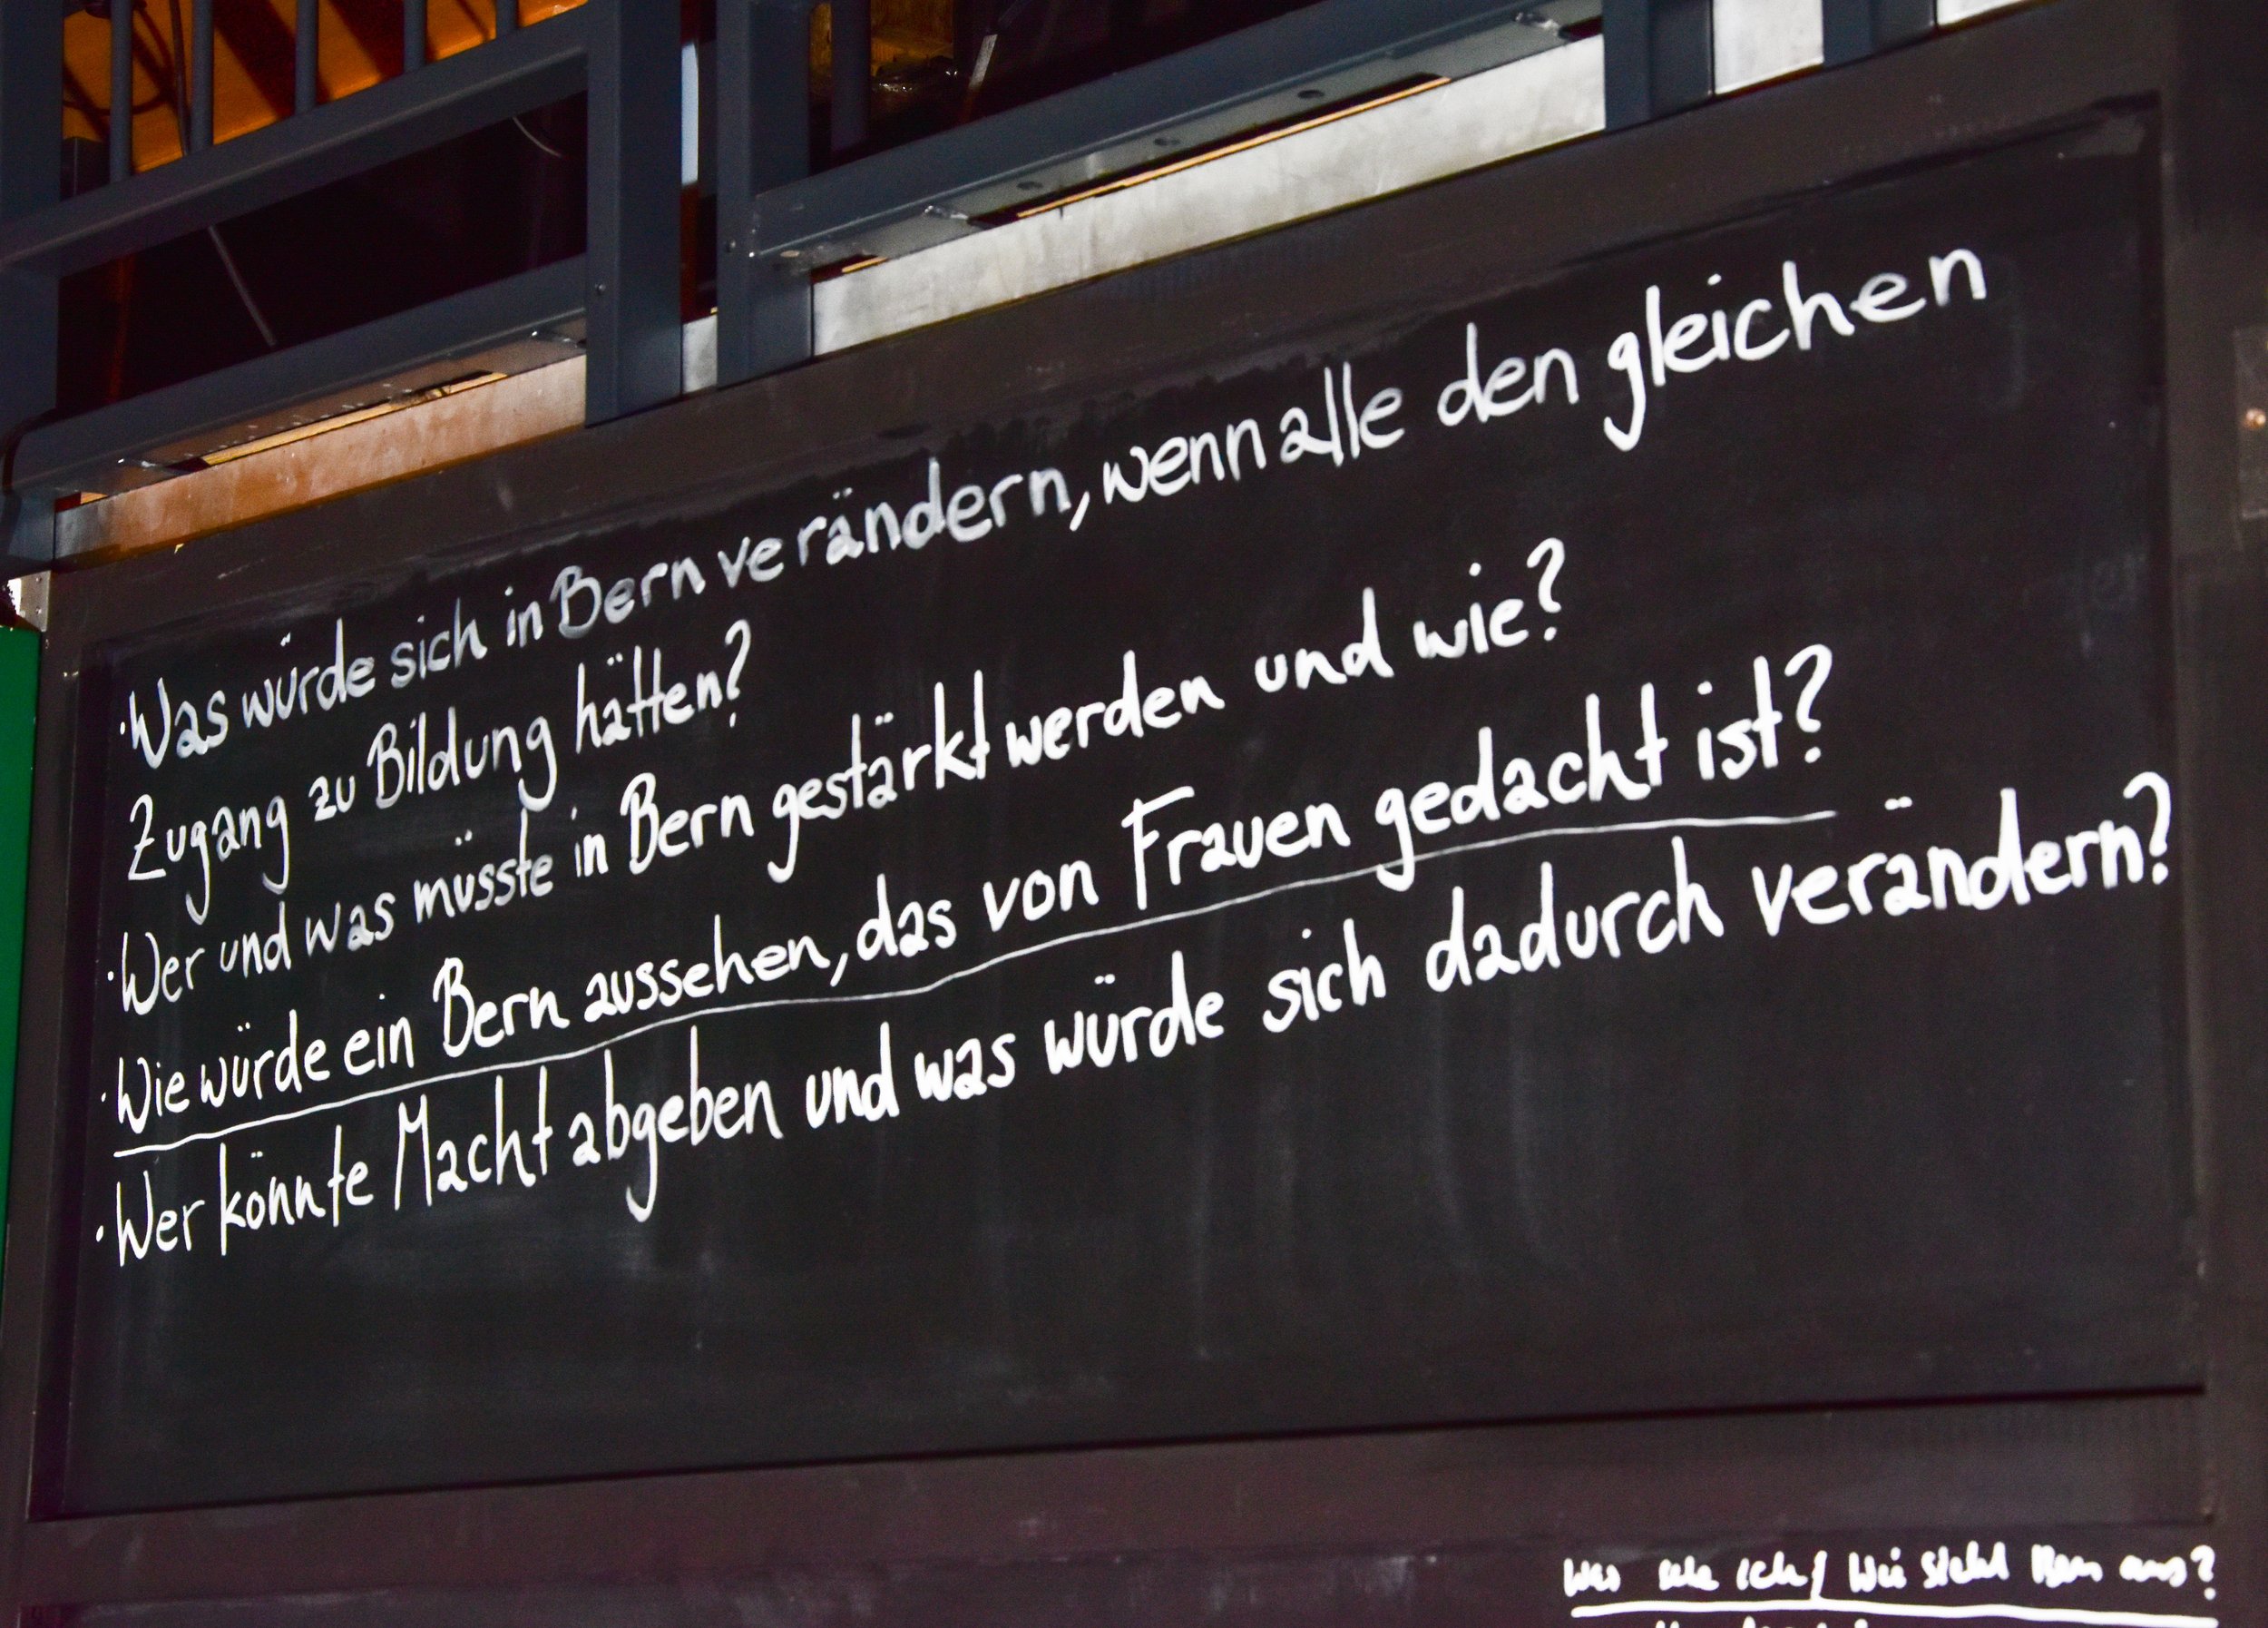 ·Was würde sich in Bern verändern, wenn alle den gleichen
Zugang zu Bildung hätten?
·Wer und was müsste in Bern gestärkt werden und wie?
·Wie würde ein Bern aussehen, das von Frauen gedacht ist?
·Wer könnte Macht abgeben und was würde sich dadurch verändern?
Was sehe ich / Wie sieht Bern aus?